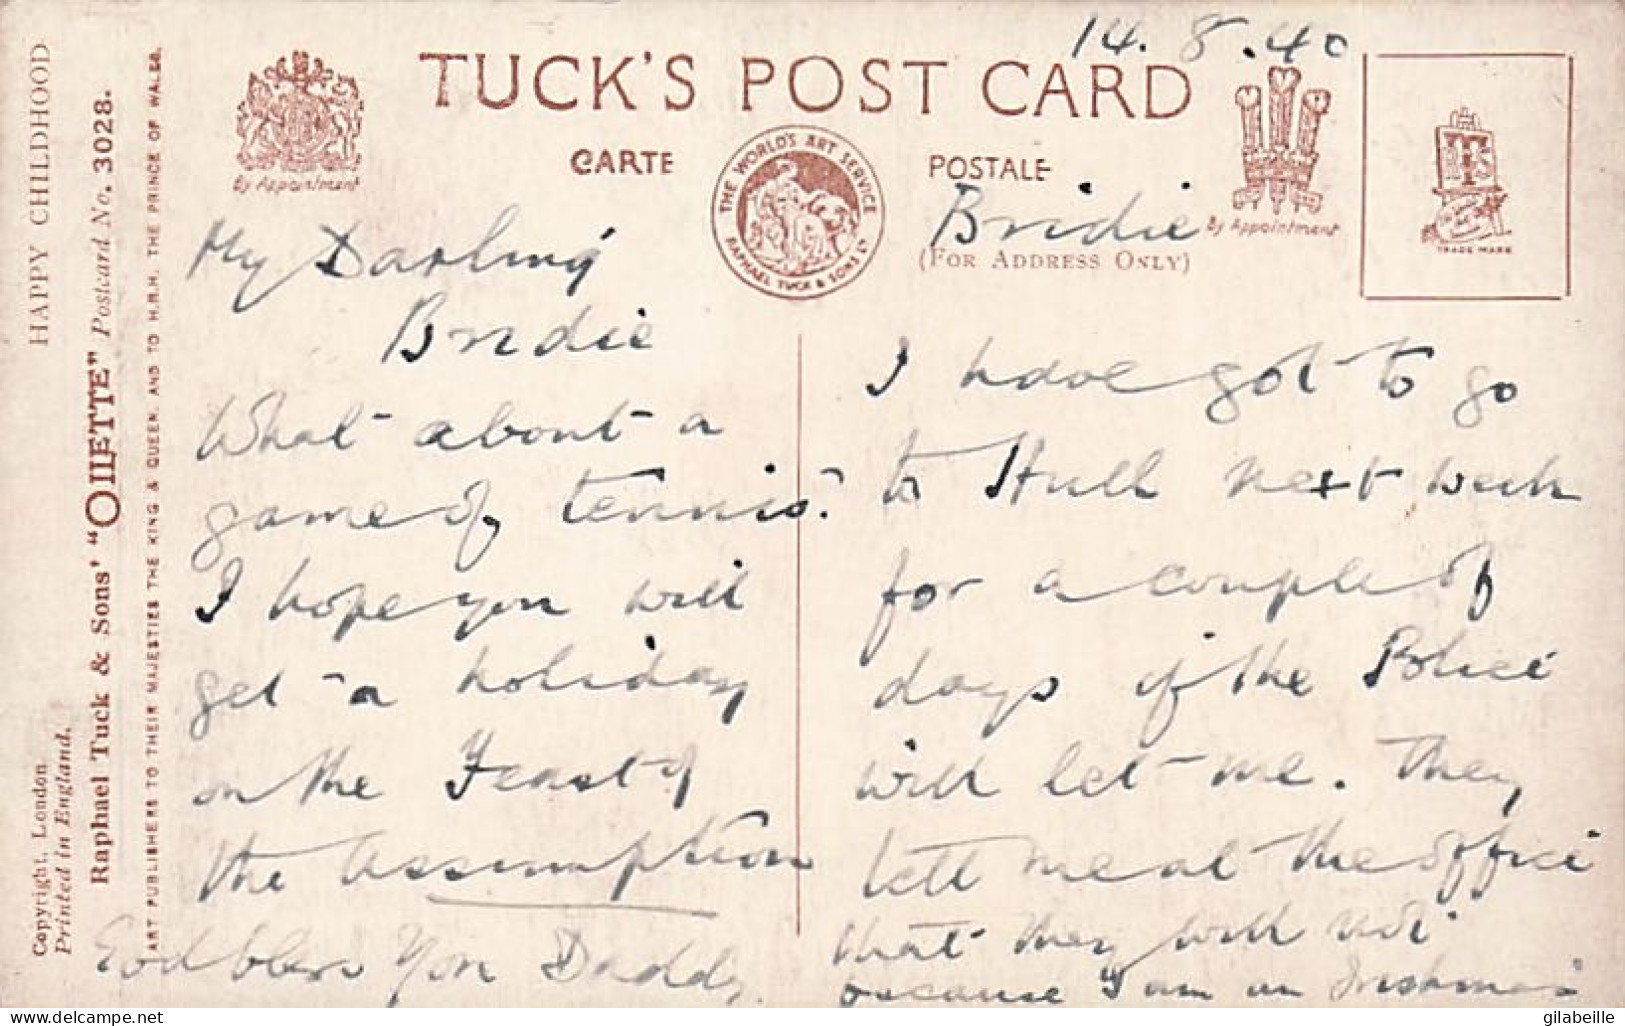 14.8.40
TUCK'S POST CARD
CARTE POSTALE
By Appointment
THE WORLD'S ART SERVICE
RAPHAEL TUCK & SONS LTD
By Appointment
TRADE MARK
Bridie
(FOR ADDRESS ONLY)
HAPPY CHILDHOOD
Copyright, London
Printed in England.
Raphael Tuck & Sons' "OILETTE" Postcard No. 3028.
ART PUBLISHERS TO THEIR MAJESTIES THE KING & QUEEN, AND TO H.R.H. THE PRINCE OF WALES.
My Darling
Bridie
What about a
game of tennis?
I hope you will
get a holiday
on the Feast of
the Assumption
God bless You Daddy.
I have got to go
to Hull next week
for a couple of
days if the Police
will let me. They
tell me at the office
that they will not
because I am an Irishman
gilabeille
delcampe.net